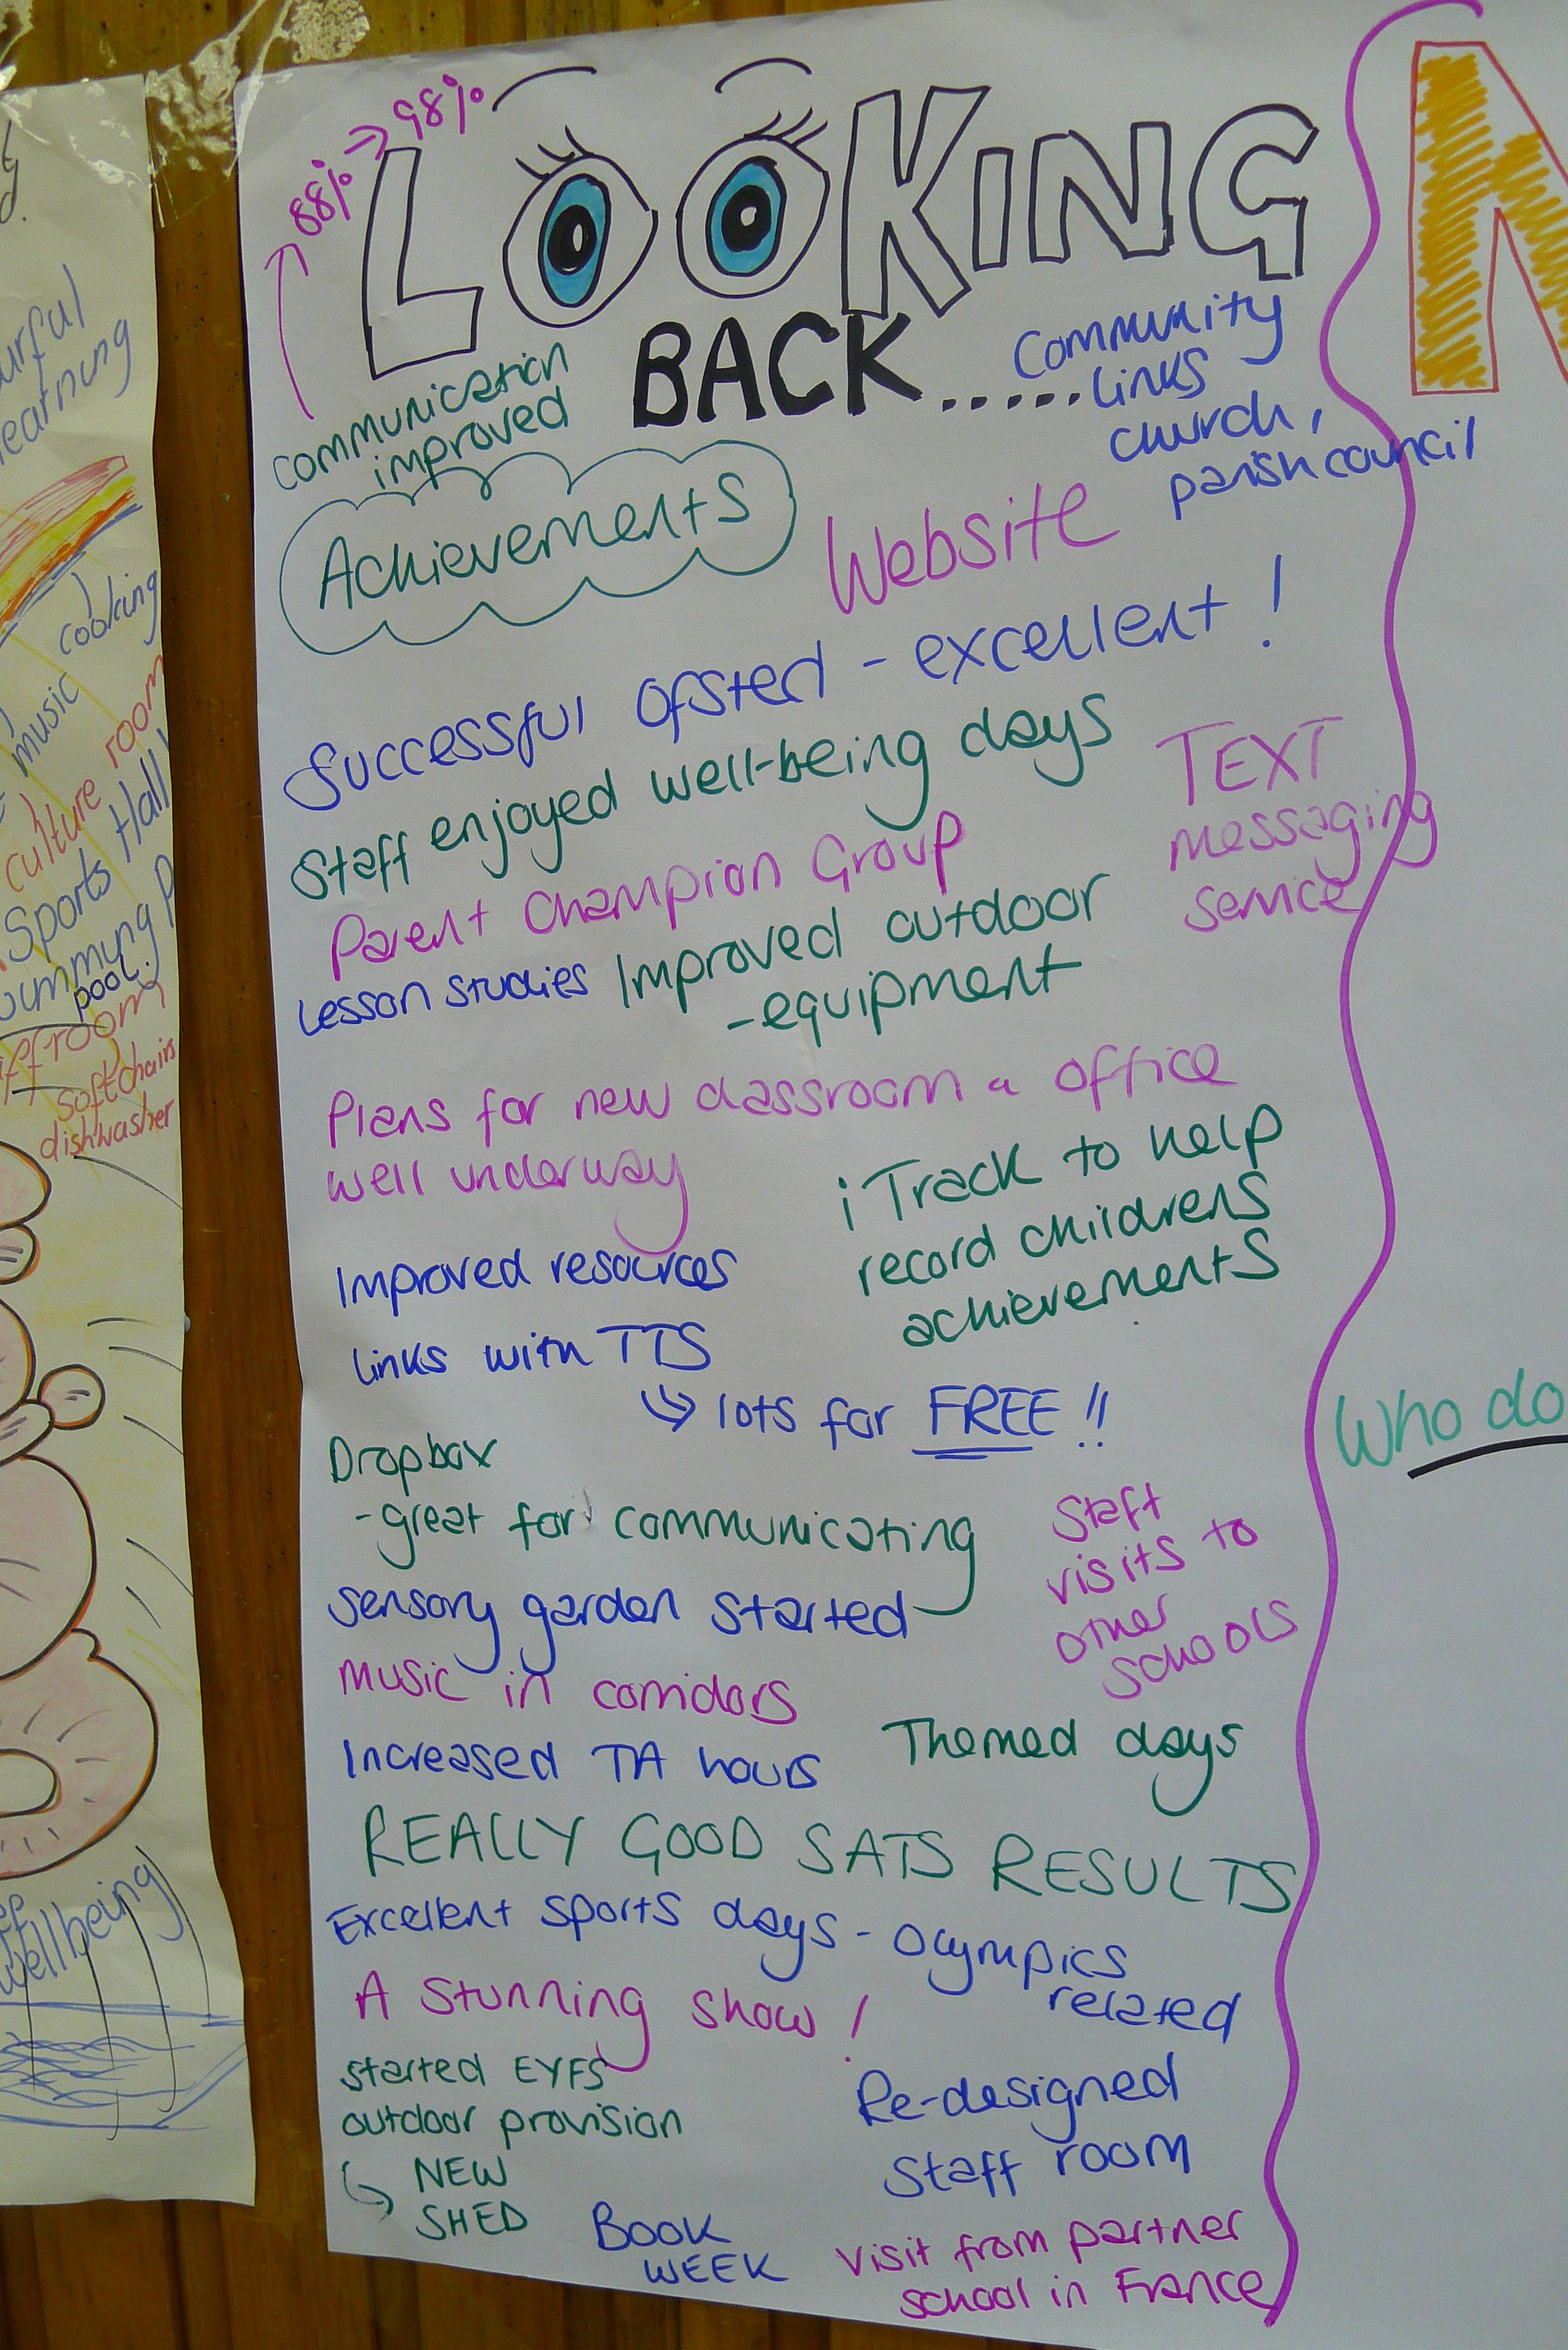 urful
earning
cooking
music
culture room
Sports Hall
pool.
softchairs
dishwasher
wellbeing
88% → 98%
LOOKING
BACK.....
communication
improved
Community
links
church,
parish council
Achievements
Website
Successful Ofsted - excellent!
Staff enjoyed well-being days
TEXT
messaging
service
Parent Champion Group
Lesson studies
Improved outdoor
-equipment
Plans for new classroom & office
well underway
iTrack to help
record childrens
achievements
Improved resources
links with TTS
↳ lots for FREE!!
Dropbox
-great for communicating
Staff
visits to
other
schools
Sensory garden started
music in corridors
Increased TA hours
Themed days
REALLY GOOD SATS RESULTS
Excellent sports days - Olympics
related
A stunning show!
started EYFS
outdoor provision
↳ NEW
SHED
Re-designed
Staff room
BOOK
WEEK
visit from partner
school in France
Who do